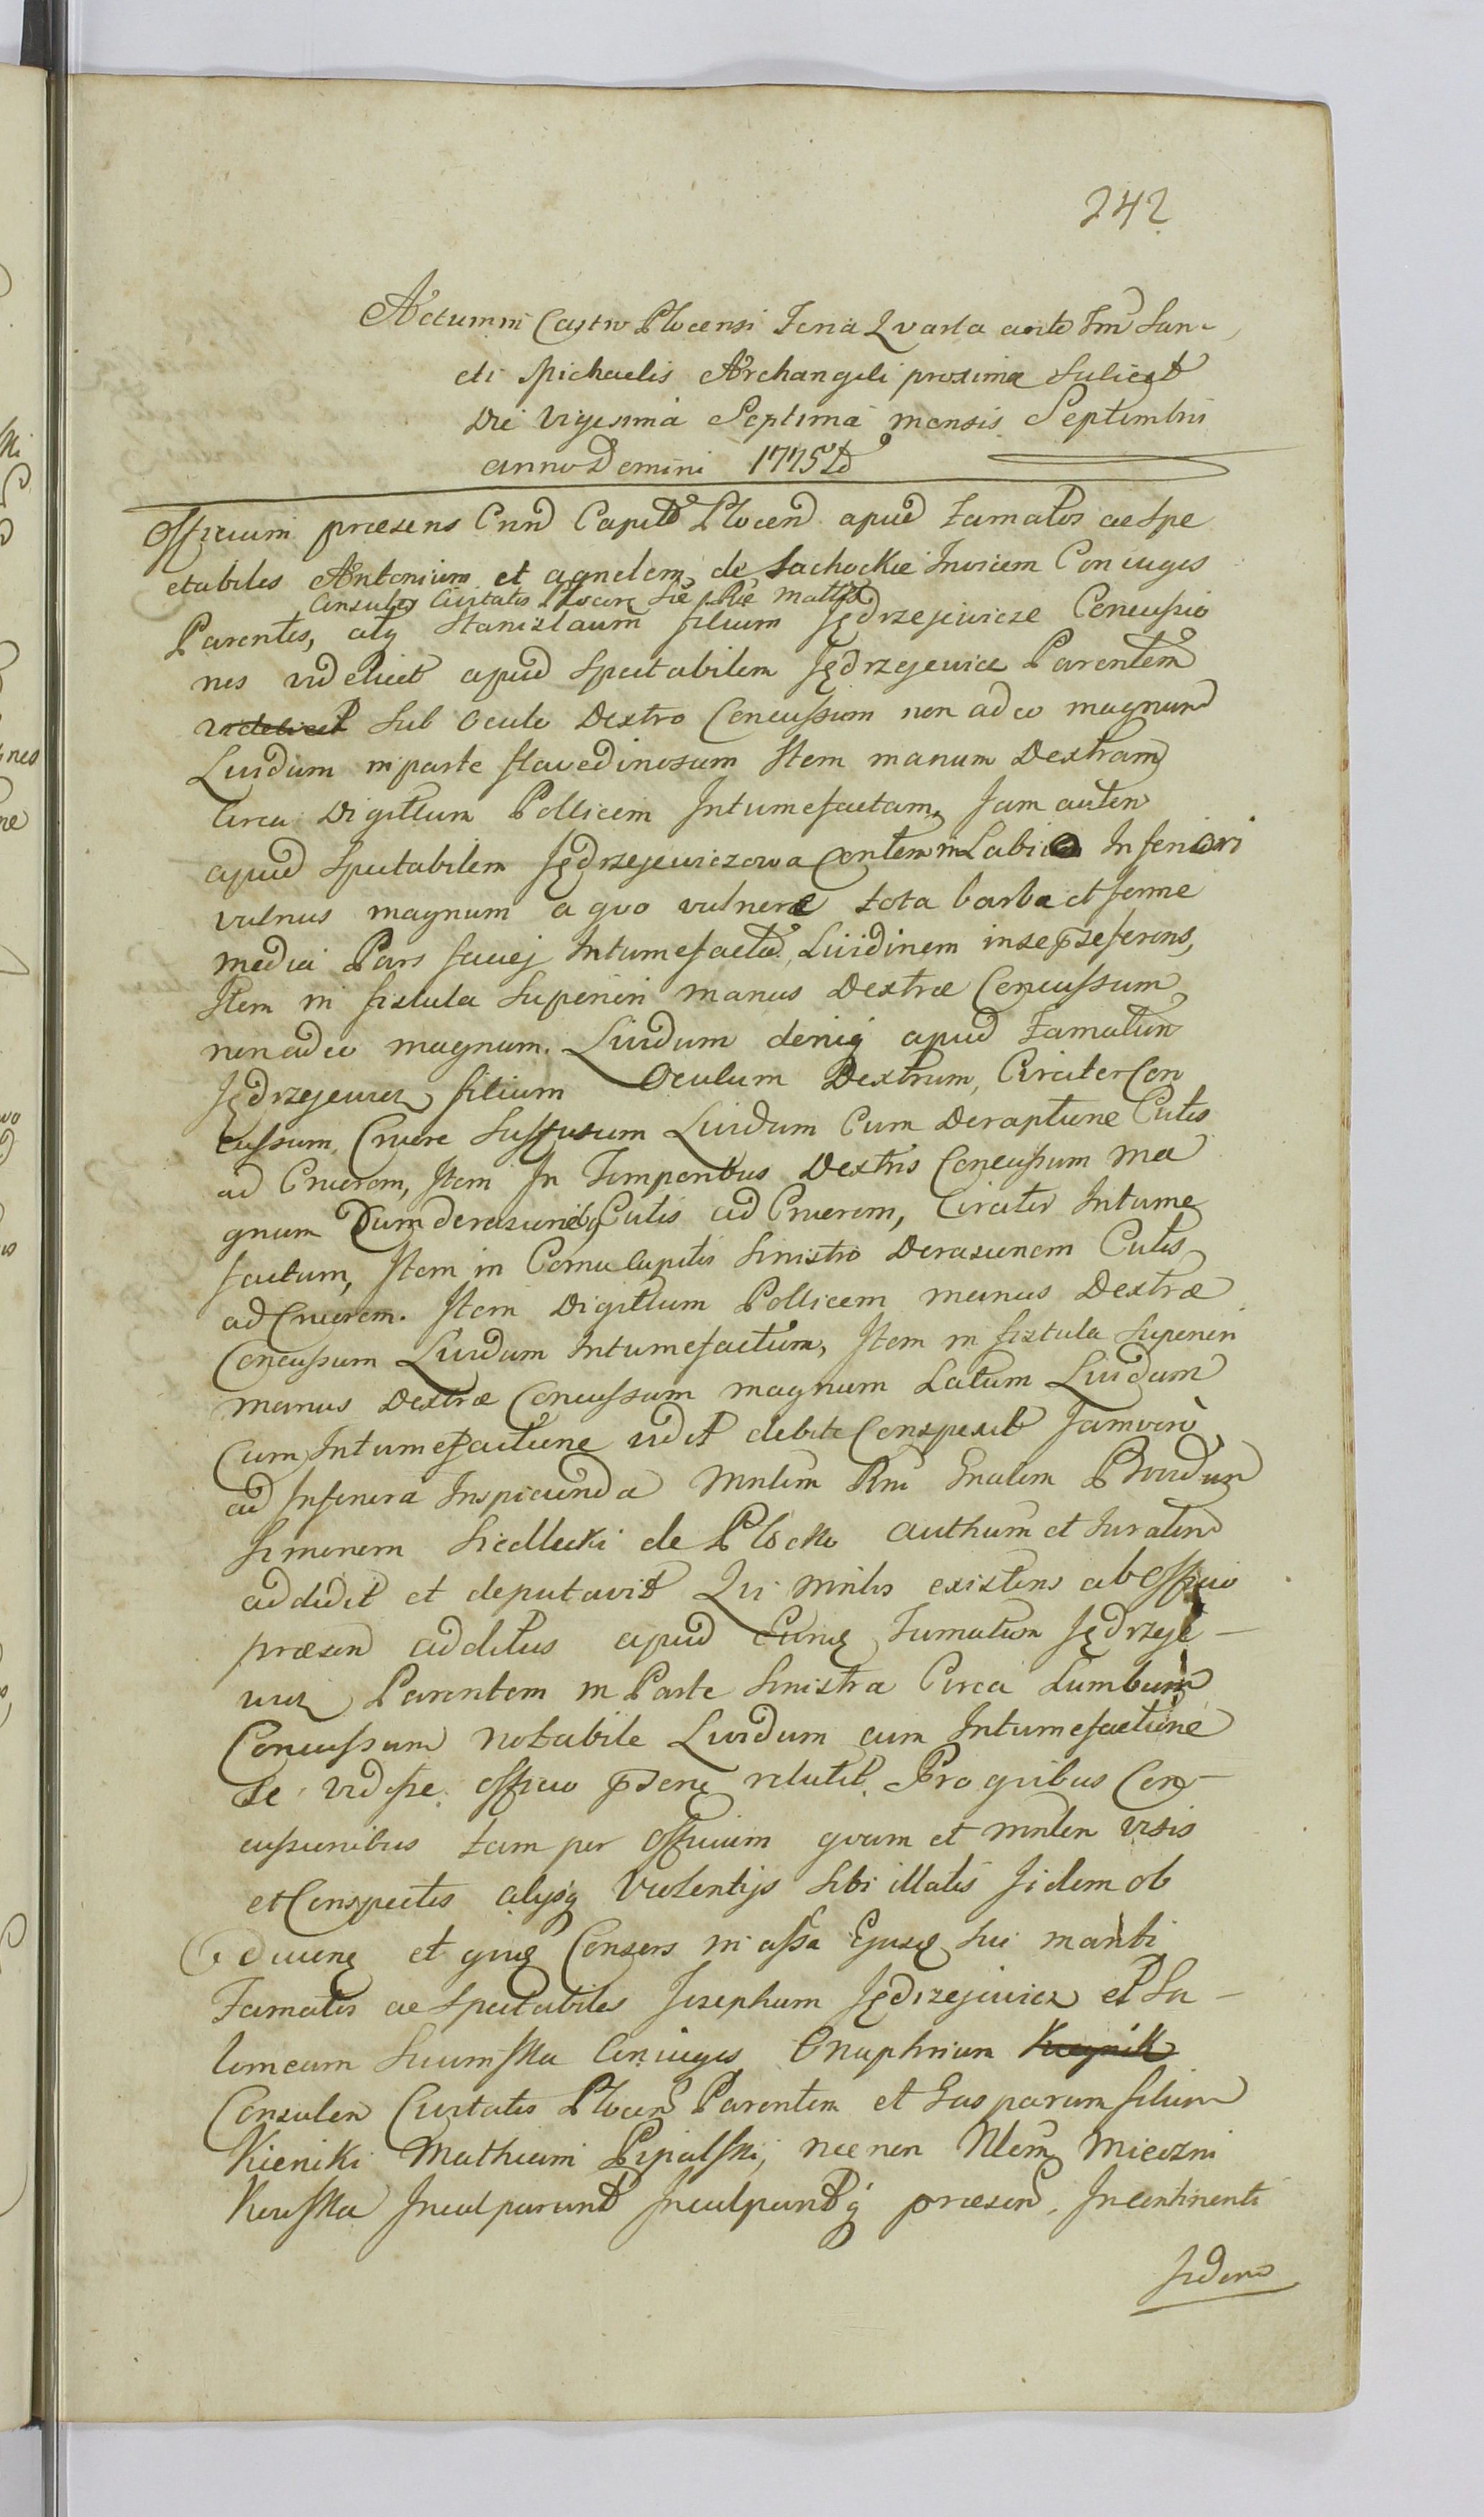 242
Actum in Castro Plocensi Feria Qvarta ante Fm San
cti Michaelis Archangeli proxima Scilicet
Die Vigesima Septima mensis Septembris
anno Domini 1775to
Officium præsens Cnn Capit Plocen apud Famatos ac Spe
ctabiles Antonium et agnetem de Sachockie Invicem Coniuges
Consules Civitatis Plocen
Parentes, atq Stanislaum filium Jędrzejewicze Concussio
nes videlicet apud Spectabilem Jędrzejewicz Parentem
videlicet Sub Oculo Dextro Concussum non adeo magnum
Lividum in parte flavedinosum Item manum Dextram
Circa Digittum Pollicem Intumefactam, Jam autem
apud Spectabilem Jędrzejewiczowa Contem in Labio Inferiori
vulnus magnum a quo vulnere tota barba et ferme
media Pars faciej Intumefacta, Lividinem in se præseferens,
Item in fistula Superiori manus Dextræ Concussum
non adeo magnum. Lividum deniq apud Famatum
Jędrzejewicz filium Oculum Dextrum, Circiter Con
cussum, Cruore Suffusum Lividum Cum Deraptione Cutis
ad Cruorem, Item In Temporibus Dextris Concussum ma
gnum Cum derasione Cutis ad Cruorem, Circiter Intume
factum, Item in Cornu Capitis Sinistro Derasionem Cutis
ad Cruorem. Item Digittum Pollicem manus Dextræ
Concussum Lividum Intumefactum, Item in fistula Superiori
manus Dextræ Concussum magnum Latum Lividum
Cum Intumefactione vidit debite Conspexit Jam vero
ad Inferiora Inspicienda Mnlem Rni Gnalem Providum
Simonem Siedlecki de Plocko Authum et Juratum
addidit et deputavit Qui Mnlis existens ab Officio
præsen additus apud Eund Famatum Jędrzeje-
wicz Parentem in Parte Sinistra Circa Lumbum
Concussum notabile Lividum cum Intumefactione
Se vidisse officio psenti retulit. Pro quibus Con-
cussionibus tam per Officium qvam et mnlem visis
et Conspectis alijsq Violentijs Sibi illatis Iidem ob
ducen et quæ Consors in assa Ejusd Sui mariti
Famatos ac Spectabiles Josephum Jędrzejewicz et Sa-
lomeam Sliwinska Coniuges Onuphrium
Consulem Civitatis Plocen Parentem et Gasparum filium
Kieniki Mathiam Pipalski, nec non Nlem Mieczni
Kowska Inculparunt Inculpantq præsen. Incontinenti
Ibidem